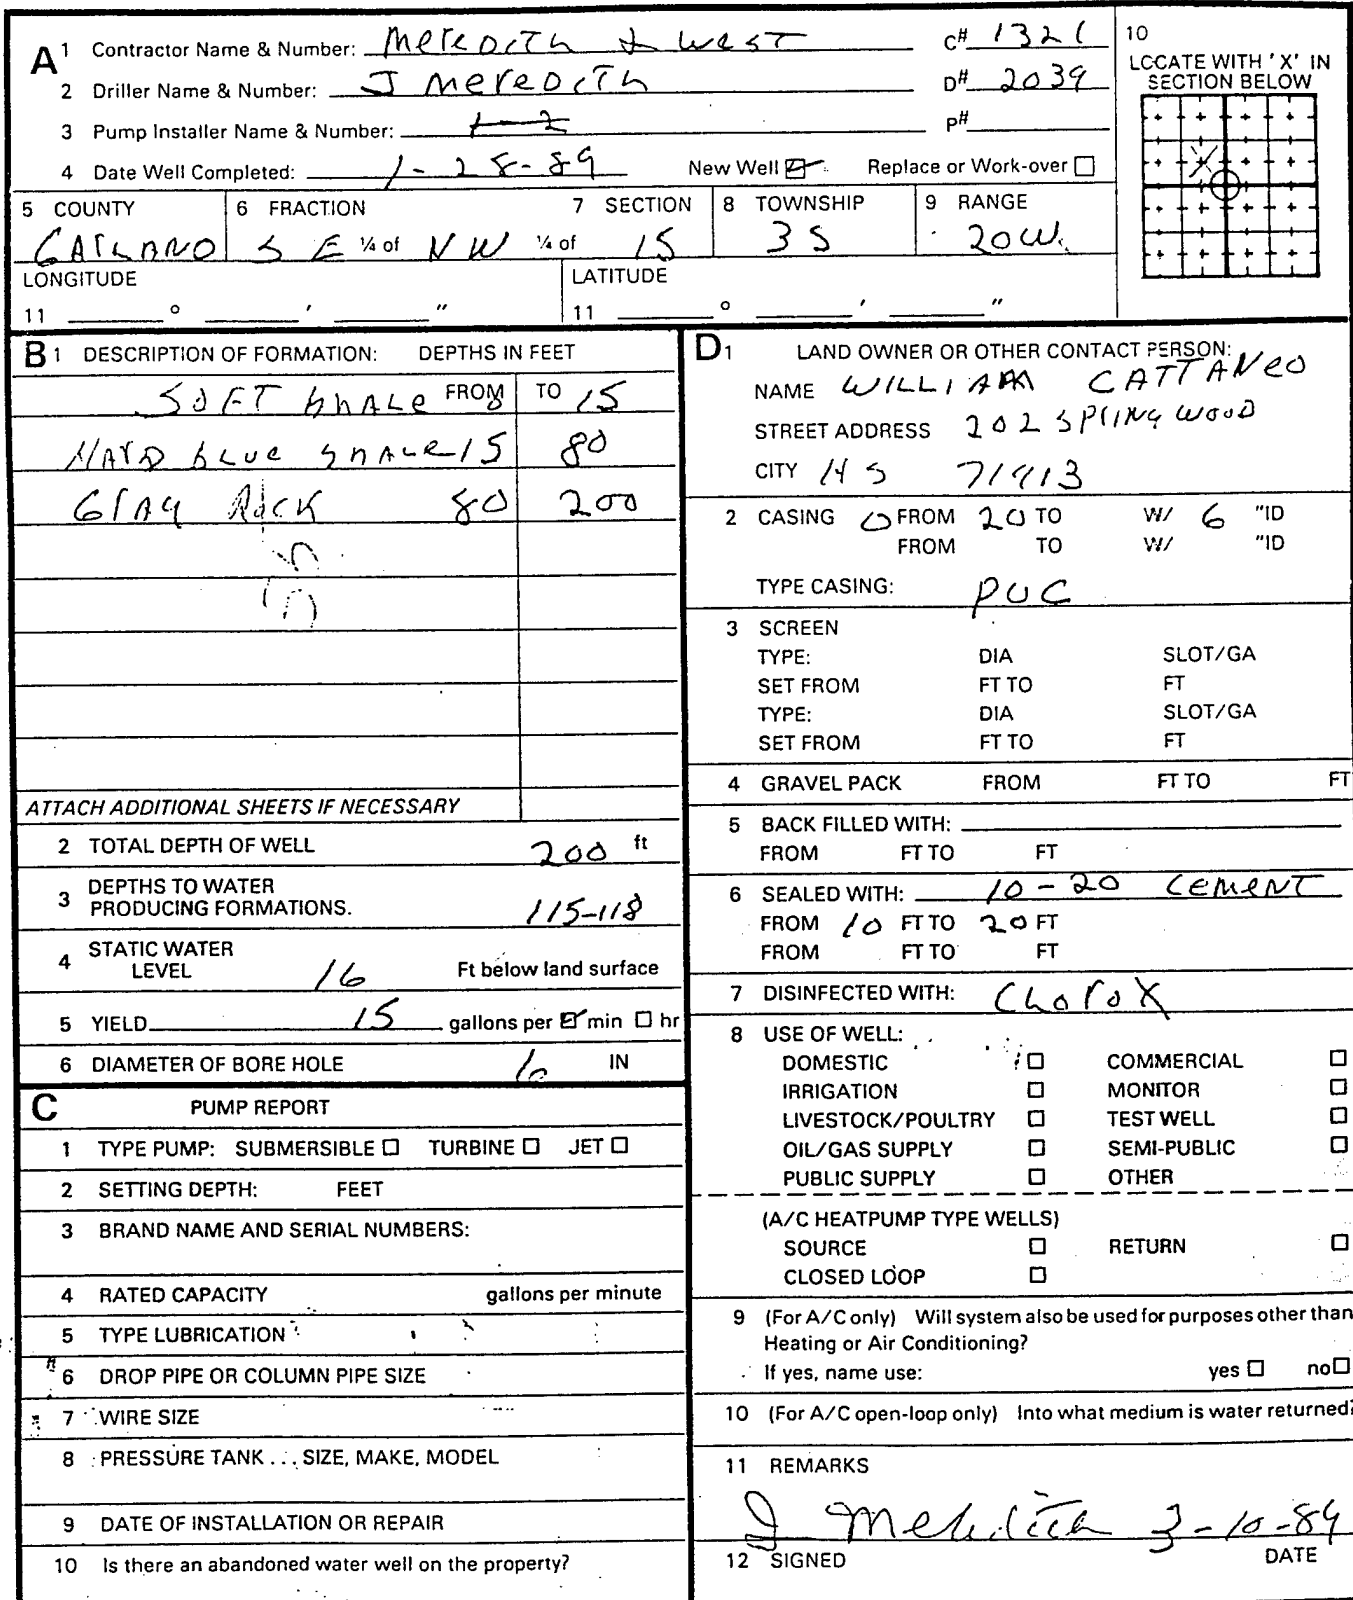 A 1 Contractor Name & Number: Meredith & West C# 1321
2 Driller Name & Number: J Meredith D# 2039
3 Pump Installer Name & Number: P#
4 Date Well Completed: 1-28-89 New Well ☑ Replace or Work-over ☐
10
LOCATE WITH 'X' IN
SECTION BELOW
X
5 COUNTY 6 FRACTION 7 SECTION 8 TOWNSHIP 9 RANGE
GARLAND S E ¼ of N W ¼ of 15 3 S 20 W.
LONGITUDE LATITUDE
11 ° ' " 11 ° ' "
B 1 DESCRIPTION OF FORMATION: DEPTHS IN FEET
FROM TO
SOFT SHALE 0 15
HARD BLUE SHALE 15 80
GRAY ROCK 80 200
ATTACH ADDITIONAL SHEETS IF NECESSARY
2 TOTAL DEPTH OF WELL 200 ft
3 DEPTHS TO WATER
PRODUCING FORMATIONS. 115-118
4 STATIC WATER
LEVEL 16 Ft below land surface
5 YIELD 15 gallons per ☑ min ☐ hr
6 DIAMETER OF BORE HOLE 6 IN
C PUMP REPORT
1 TYPE PUMP: SUBMERSIBLE ☐ TURBINE ☐ JET ☐
2 SETTING DEPTH: FEET
3 BRAND NAME AND SERIAL NUMBERS:
4 RATED CAPACITY gallons per minute
5 TYPE LUBRICATION
6 DROP PIPE OR COLUMN PIPE SIZE
7 WIRE SIZE
8 PRESSURE TANK . . . SIZE, MAKE, MODEL
9 DATE OF INSTALLATION OR REPAIR
10 Is there an abandoned water well on the property?
D 1 LAND OWNER OR OTHER CONTACT PERSON:
NAME WILLIAM CATTANEO
STREET ADDRESS 202 SPRING WOOD
CITY H S 71913
2 CASING 0 FROM 20 TO W/ 6 "ID
FROM TO W/ "ID
TYPE CASING: PVC
3 SCREEN
TYPE: DIA SLOT/GA
SET FROM FT TO FT
TYPE: DIA SLOT/GA
SET FROM FT TO FT
4 GRAVEL PACK FROM FT TO FT
5 BACK FILLED WITH:
FROM FT TO FT
6 SEALED WITH: 10-20 CEMENT
FROM 10 FT TO 20 FT
FROM FT TO FT
7 DISINFECTED WITH: Chorox
8 USE OF WELL:
DOMESTIC ☐ COMMERCIAL ☐
IRRIGATION ☐ MONITOR ☐
LIVESTOCK/POULTRY ☐ TEST WELL ☐
OIL/GAS SUPPLY ☐ SEMI-PUBLIC ☐
PUBLIC SUPPLY ☐ OTHER
(A/C HEATPUMP TYPE WELLS)
SOURCE ☐ RETURN ☐
CLOSED LOOP ☐
9 (For A/C only) Will system also be used for purposes other than
Heating or Air Conditioning?
If yes, name use: yes ☐ no ☐
10 (For A/C open-loop only) Into what medium is water returned?
11 REMARKS
J Meredith 3-10-89
12 SIGNED DATE